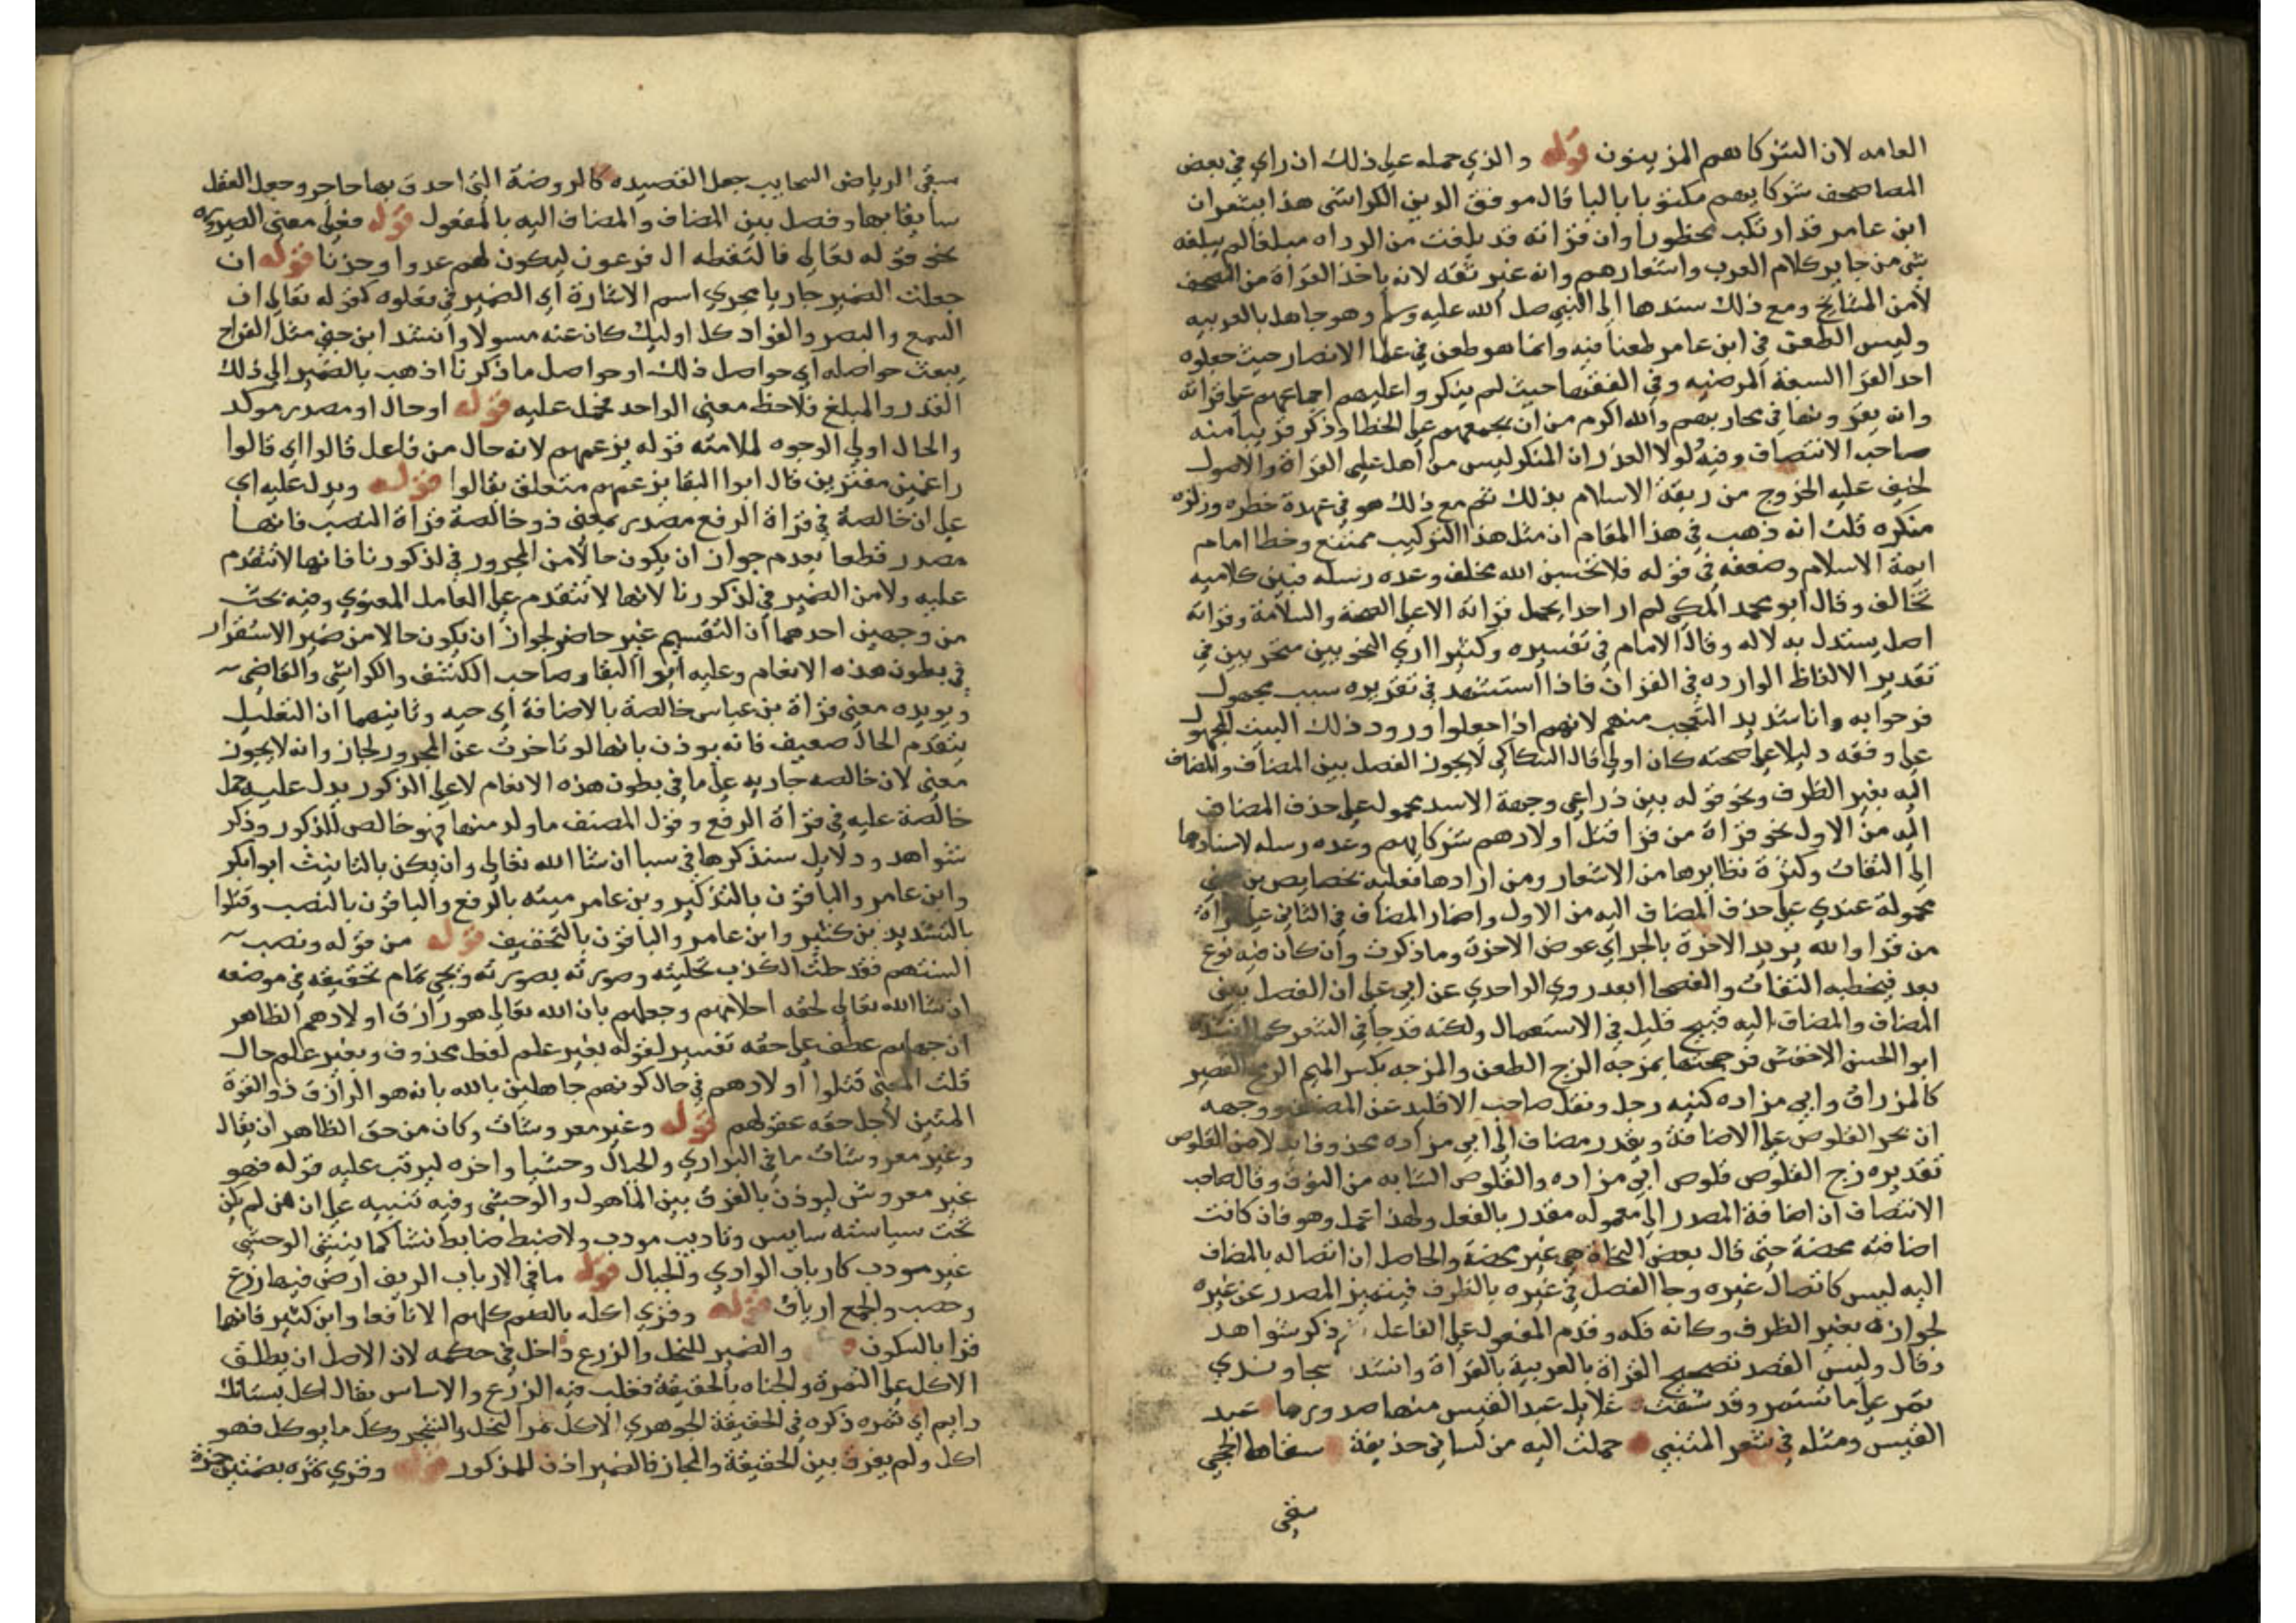 العامه لان الشركا هم المزينون قوله والذي حمله علي ذلك ان راي في بعض
المصاحف شركايهم مكتوبا بالبا قال موفق الدين الكواشي هذا يشعر ان
ابن عامر قد ارتكب محظورا وان قراته قد بلغت من الرداه مبلغا لم يبلغه
شي من جاير كلام العرب واشعارهم وانه غير ثقه لانه ياخذ القراة من المصحف
لا من المشايخ ومع ذلك سندها الي النبي صل الله عليه وسلم وهو جاهل بالعربيه
وليس الطعن في ابن عامر طعنا فيه وانما هو طعن في علما الامصار حيث جعلوه
احد القرا السبعة المرضيه وفي الفقها حيث لم ينكروا عليهم اجماعهم علي قراته
وانه يقرونها في محاريبهم والله اكرم من ان يجمعهم علي الخطا وذكر قريبا منه
صاحب الانتصاف وفيه لولا العذر ان المنكر ليس من اهل علمي القراة والاصول
لخيف عليه الخروج من ربقة الاسلام بذلك ثم مع ذلك هو في عهدة خطره وزلزه
منكره قلت انه ذهب في هذا المقام ان مثل هذا التركيب ممتنع وخطا امام
ايمة الاسلام وضعفه في قوله فلا تحسبن الله مخلف وعده رسله فبين كلاميه
تخالف وقال ابو محمد المكي لم ار احدا يحمل قراته الا علي الصحة والسلامة وقراته
اصل يستدل به لا له وقال الامام في تفسيره وكثيرا اري النحويين متحريين في
تقدير الالفاظ الوارده في القران فاذا استشهد في تقريره سبب مجهول
فرحوا به وانا شديد التعجب منهم لانهم اذا جعلوا ورود ذلك البيت المجهول
علي وفقه دليلا علي صحته كان اولي قال السكاكي لا يجوز الفصل بين المضاف والمضاف
اليه بغير الظرف ونحو قوله بين ذراعي وجبهة الاسد محمول علي حذف المضاف
اليه من الاول نحو قراة من قرا قتل اولادهم شركايهم وعده رسله لاسنادها
الي الثقات وكثرة نظايرها من الاشعار ومن ارادها فعليه بخصايص بن جني
محمولة عندي علي حذف المضاف اليه من الاول واضمار المضاف في الثاني علي قراة
من قرا والله يريد الاخرة بالجر اي عوض الاخرة وما ذكرت وان كان فيه نوع
بعد فتخطيه الثقات والفصحا ابعد روي الواحدي عن ابي علي ان الفصل بين
المضاف والمضاف اليه قبيح قليل في الاستعمال ولكنه قد جا في الشعر كما انشد
ابو الحسن الاخفش فزججتها بمزجه الزج الطعن والمزجه بكسر الميم الرمح القصير
كالمزراق وابي مزاده كنيه رجل ونقل صاحب الاقليد عن المصنف ووجهه
ان نجر القلوص علي الاضافة ويقدر مضاف الي ابي مزاده محذوفا بدلا من القلوص
تقديره زج القلوص قلوص ابي مزاده والقلوص الشابه من النوق وقال صاحب
الانتصاف ان اضافة المصدر الي معموله مقدر بالفعل ولهذا عمل وهو فان كانت
اضافته محضة حتي قال بعض النحاة هي غير محضة والحاصل ان اتصاله بالمضاف
اليه ليس كاتصال غيره وجا الفصل في غيره بالظرف فيتميز المصدر عن غيره
لجوازه بغير الظرف وكانه فكه وقدم المفعول علي الفاعل ذكر شواهد
وقال وليس القصد تصحيح القراة بالعربية بالقراة وانشد سجاوندي
تمر علي ما تستمر وقد شفت غلايل عبد القيس منها صدورها عبد
القيس ومثله في شعر المتنبي حملت اليه من لساني حذيقة سقاها الحجي
سقي
سقي الرياض السحايب جعل القصيده كالروضة التي احدق بها حاجز وجعل العقل
سايقا بها وفصل بين المضاف والمضاف اليه بالمفعول قوله فعلي معني الصيرورة
نحو قوله تعالي فالتقطه ال فرعون ليكون لهم عدوا وحزنا قوله ان
جعلت الضمير جاريا مجري اسم الاشارة اي الضمير في فعلوه كقوله تعالي ان
السمع والبصر والفواد كل اوليك كان عنه مسولا وانشد ابن جني مثل الفراخ
يبعث حواصله اي حواصل ذلك او حواصل ما ذكرنا اذهب بالضمير الي ذلك
القدر والمبلغ فلاحظ معني الواحد فحمل عليه قوله او حال او مصدر موكد
والحال اولي الوجوه لملامته قوله بزعمهم لانه حال من فاعل قالوا اي قالوا
زاعمين مفترين قال ابوا البقا بزعمهم متعلق بقالوا قوله ويدل عليه اي
علي ان خالصة في قراة الرفع مصدر بمعني ذو خالصة قراة النصب فانها
مصدر قطعا بعدم جواز ان يكون حالا من المجرور في لذكورنا فانها لا تتقدم
عليه ولا من الضمير في لذكورنا لانها لا تتقدم علي العامل المعنوي وفيه بحث
من وجهين احدهما ان التقسيم غير حاضر لجواز ان يكون حالا من ضمير الاستقرار
في بطون هذه الانعام وعليه ابوا البقا وصاحب الكشف والكواشي والقاضي
ويويده معني قراة بن عباس خالصة بالاضافة اي حيه وثانيهما ان التعليل
بتقدم الحال ضعيف فانه يوذن بانها لو تاخرت عن المجرور لجاز وانه لا يجوز
معني لان خالصه جاريه علي ما في بطون هذه الانعام لا علي الذكور يدل عليه حمل
خالصة عليه في قراة الرفع وقول المصنف ما ولد منها فهو خالص للذكور وذكر
شواهد ودلايل سنذكرها في سبا ان شا الله تعالي وان يكن بالتانيث ابوا بكر
وابن عامر والباقون بالتذكير وبن عامر ميته بالرفع والباقون بالنصب وقتلوا
بالتشديد بن كثير وابن عامر والباقون بالتخفيف قوله من قوله ونصب
السنتهم فقد حلت الكذب بحليته وصورته بصورته ويجي تمام تحقيقه في موضعه
ان شا الله تعالي لخفه احلامهم وجهلهم بان الله تعالي هو رازق اولادهم الظاهر
ان جهلهم عطف علي خفه تفسير لقوله بغير علم لفظ محذوف وبغير علم حال
قلت المعني قتلوا اولادهم في حال كونهم جاهلين بالله بانه هو الرازق ذو القوة
المتين لاجل خفه عقولهم قوله وغير معروشات وكان من حق الظاهر ان يقال
وغير معروشات ما في البراري والجبال وحشيا واخره ليرتب عليه قوله فهو
غير معروش ليوذن بالفرق بين الماهول والوحشي وفيه تنبيه علي ان من لم يكن
تحت سياسته سايس وتاديب مودب ولا ضبط ضابط نشا كما ينشي الوحشي
غير مودب كارباب الوادي والجبال قوله ما في الارياف الريف ارض فيها زرع
وخصب والجمع ارياف قوله وقري اكله بالضم كلهم الا نافعا وابن كثير فانهما
قرا بالسكون والضمير للنخل والزرع داخل في حكمه لان الاصل ان يطلق
الاكل علي الثمرة والجناه بالحقيقة فغلب فيه الزرع والاساس يقال اكل بستانك
دايم اي ثمره ذكره في الحقيقة الجوهري الاكل ثمر النخل والشجر وكل ما يوكل فهو
اكل ولم يفرق بين الحقيقة والمجاز فالضمير اذن للمذكور قوله وقري ثمره بضمتين حمزة